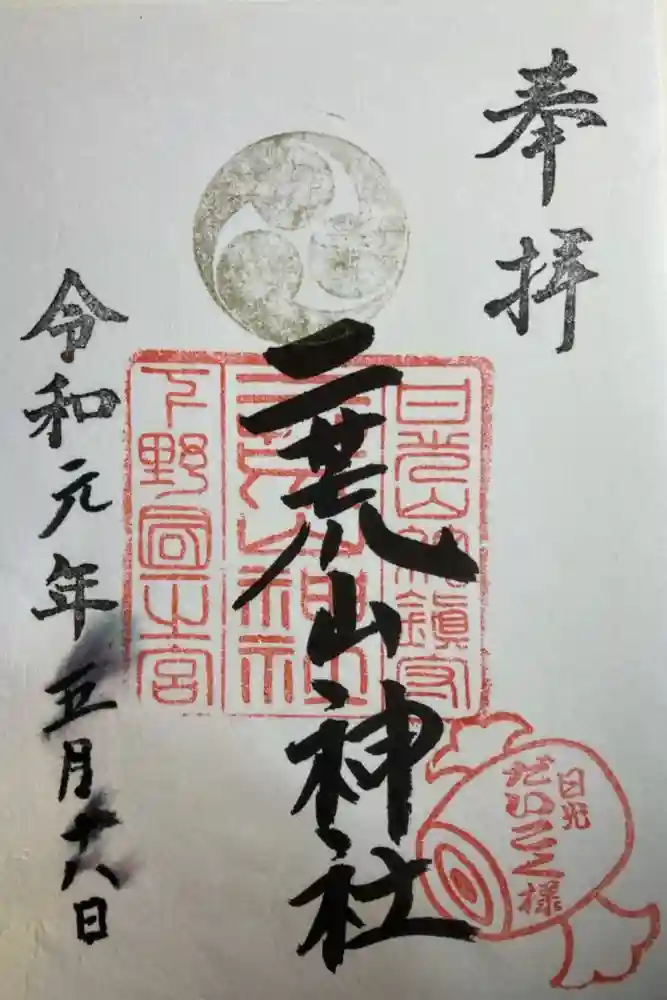 奉拝
日光山総鎮守
二荒山神社
下野国一之宮
二荒山神社
日光
だいこく様
令和元年五月十八日